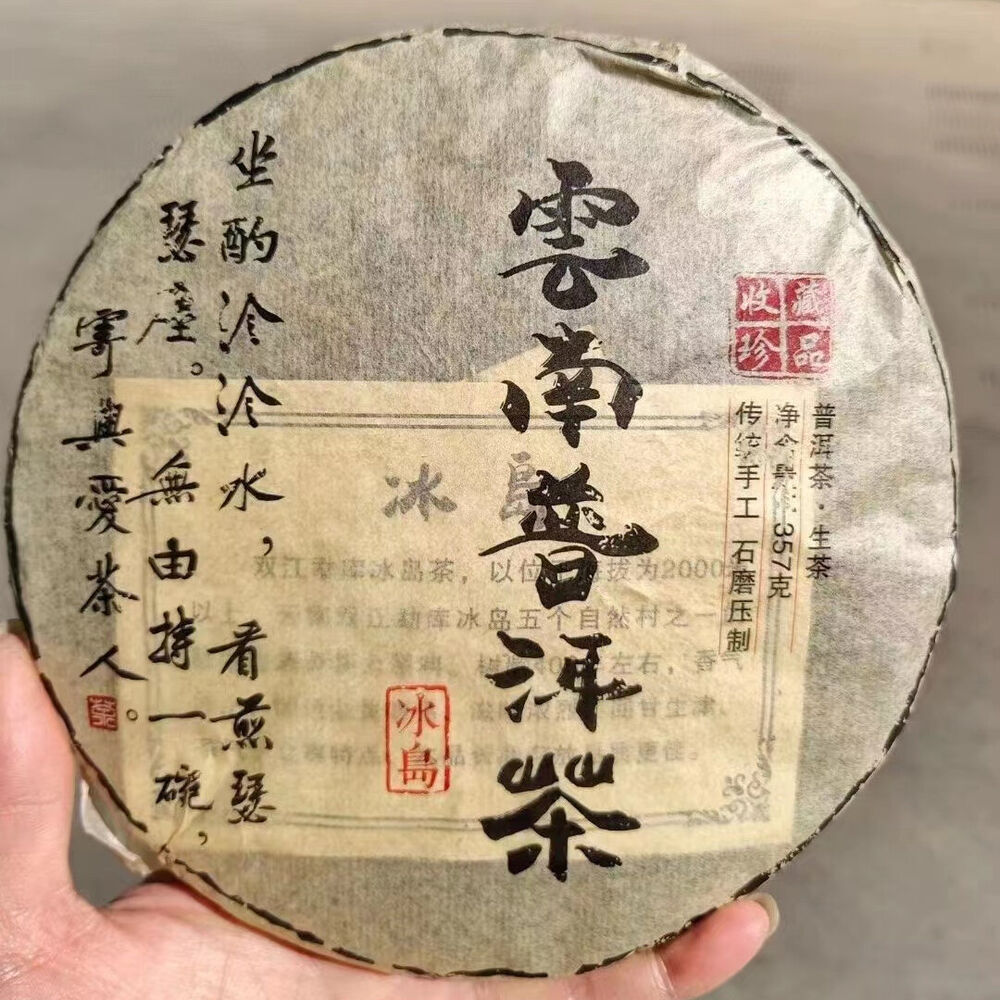 收藏
珍品
普洱茶·生茶
净含量:357克
传统手工 石磨压制
雲南普洱茶
冰島
坐酌泠泠水，看煎瑟
瑟塵。無由持一碗，
寄與愛茶人。
冰 島
双江勐库冰岛茶，以位 海拔为2000
以上 双江勐库冰岛五个自然村之一
左右，香气
回甘生津
特点